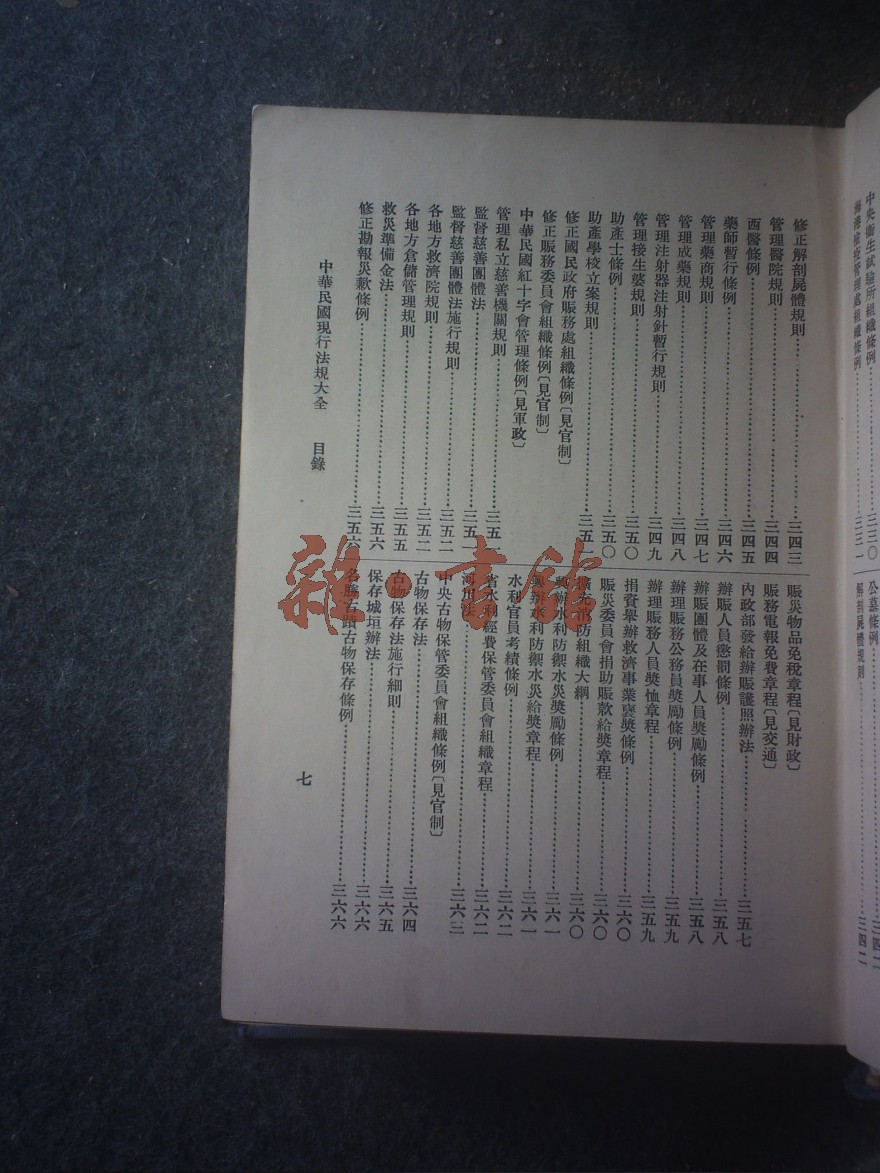 中央衞生試驗所組織條例……三三〇
海港檢疫管理處組織條例……三三一
公墓條例……三四二
解剖屍體規則……三四二
修正解剖屍體規則……三四三
管理醫院規則……三四四
西醫條例……三四五
藥師暫行條例……三四六
管理藥商規則……三四七
管理成藥規則……三四八
管理注射器注射針暫行規則……三四九
管理接生婆規則……三五〇
助產士條例……三五〇
助產學校立案規則……三五一
修正國民政府賑務處組織條例〔見官制〕
修正賑務委員會組織條例〔見官制〕
中華民國紅十字會管理條例〔見軍政〕
管理私立慈善機關規則……三五一
監督慈善團體法……三五一
監督慈善團體法施行規則……三五二
各地方救濟院規則……三五二
各地方倉儲管理規則……三五五
救災準備金法……三五六
修正勘報災歉條例……三五六
賑災物品免稅章程〔見財政〕
賑務電報免費章程〔見交通〕
內政部發給辦賑護照辦法……三五七
辦賑人員懲罰條例……三五八
辦賑團體及在事人員獎勵條例……三五八
辦理賑務公務員獎勵條例……三五九
辦理賑務人員獎恤章程……三五九
捐資舉辦救濟事業褒獎條例……三六〇
賑災委員會捐助賑款給獎章程……三六〇
擴充消防組織大綱……三六〇
興辦水利防禦水災獎勵條例……三六一
興辦水利防禦水災給獎章程……三六一
水利官員考績條例……三六二
省水利經費保管委員會組織章程……三六二
河川法……三六三
中央古物保管委員會組織條例〔見官制〕
古物保存法……三六四
古物保存法施行細則……三六五
保存城垣辦法……三六六
名勝古蹟古物保存條例……三六六
中華民國現行法規大全 目錄
七
雜·書館